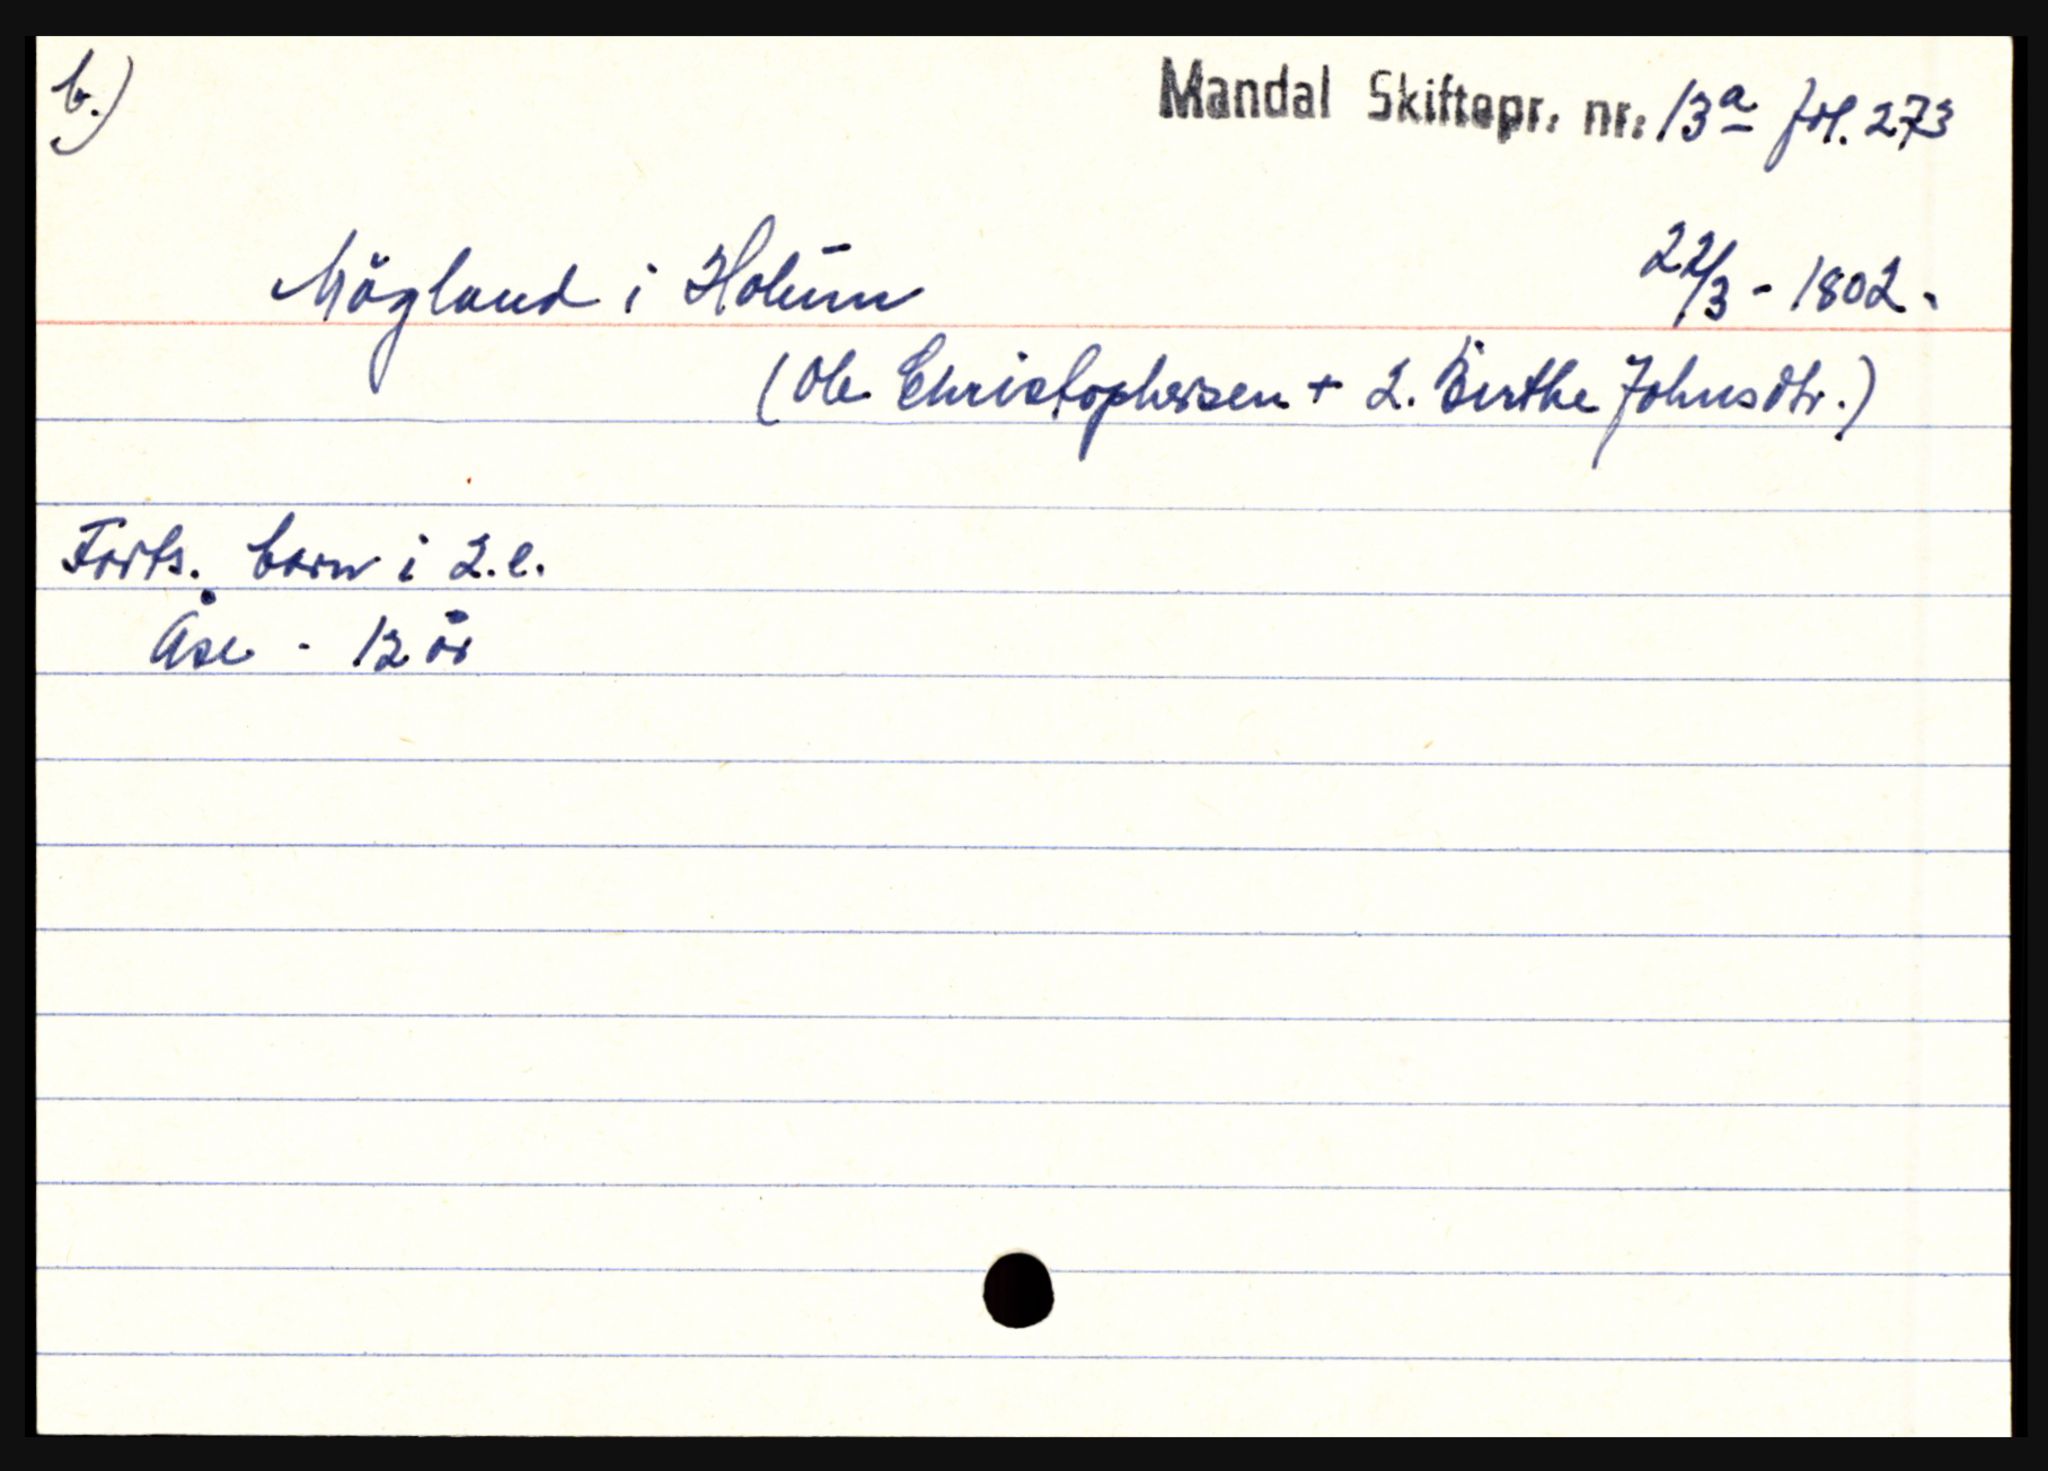 b.)
Mandal Skiftepr. nr: 13a fol. 273
Mögland i Holum 22/3 - 1802.
(Ole Christophersen + 2. Birthe Johnsdtr.)
Forts. born i 2. e.
Åse - 12 år